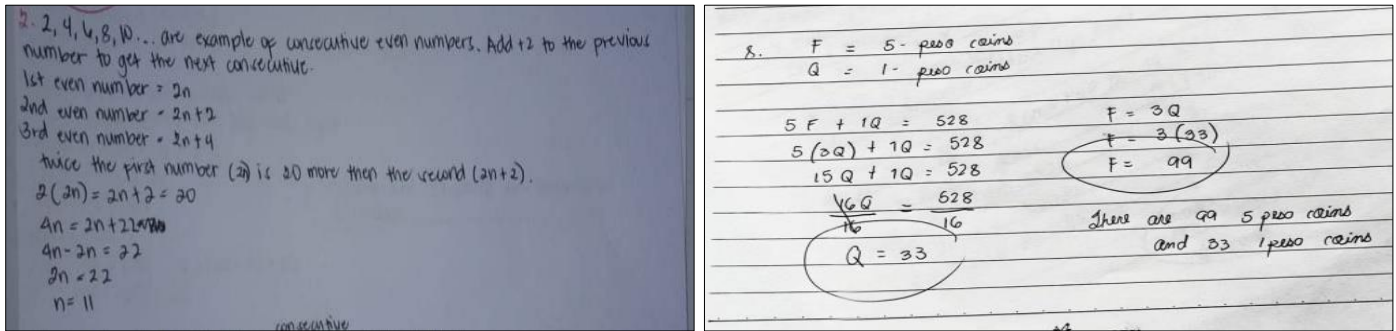 2. 2, 4, 6, 8, 10... are example of consecutive even numbers. Add +2 to the previous
number to get the next consecutive.
1st even number = 2n
2nd even number = 2n+2
3rd even number = 2n+4
twice the first number (2n) is 20 more then the second (2n+2).
2(2n) = 2n+2 = 20
4n = 2n+22
4n-2n = 22
2n = 22
n= 11
consecutive
8. F = 5- peso coins
Q = 1- peso coins
5F + 1Q = 528
5(3Q) + 1Q = 528
15Q + 1Q = 528
16Q = 528
16 16
Q = 33
F = 3Q
F = 3(33)
F = 99
There are 99 5 peso coins
and 33 1 peso coins